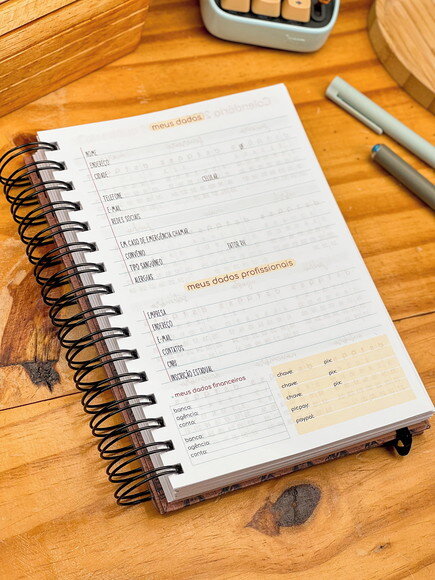 meus dados
NOME
ENDEREÇO
CIDADE UF
TELEFONE CELULAR
E-MAIL
REDES SOCIAIS
EM CASO DE EMERGÊNCIA CHAMAR
CONVÊNIO
TIPO SANGUÍNEO FATOR RH
ALERGIAS
meus dados profissionais
EMPRESA
ENDEREÇO
E-MAIL
CONTATOS
CNPJ
INSCRIÇÃO ESTADUAL
meus dados financeiros
banco:
agência:
conta:
banco:
agência:
conta:
chave: pix:
chave: pix:
chave: pix:
picpay:
paypal: